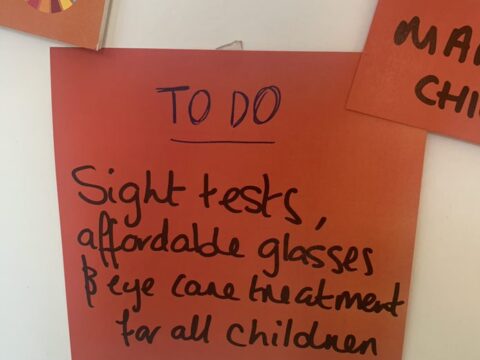 TO DO
Sight tests,
affordable glasses
& eye care treatment
for all children
MA
CHI